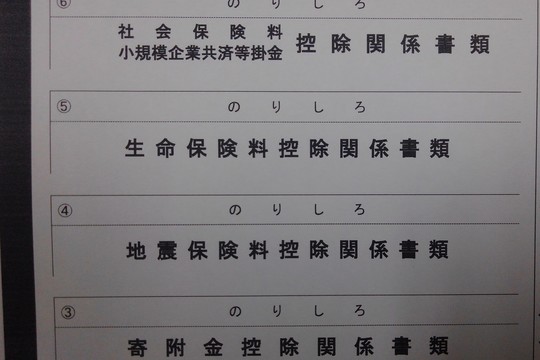 ⑥ のりしろ
社会保険料
小規模企業共済等掛金 控除関係書類
⑤ のりしろ
生命保険料控除関係書類
④ のりしろ
地震保険料控除関係書類
③ のりしろ
寄附金控除関係書類